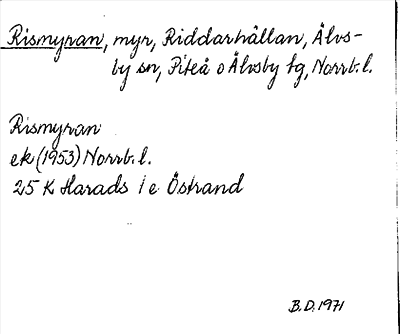 Rismyran, myr, Riddarhällan, Älvs-
by sn, Piteå o Älvsby tg, Norrb. l.
Rismyran
ek (1953) Norrb. l.
25 K Harads 1 e Östrand
B.D. 1971